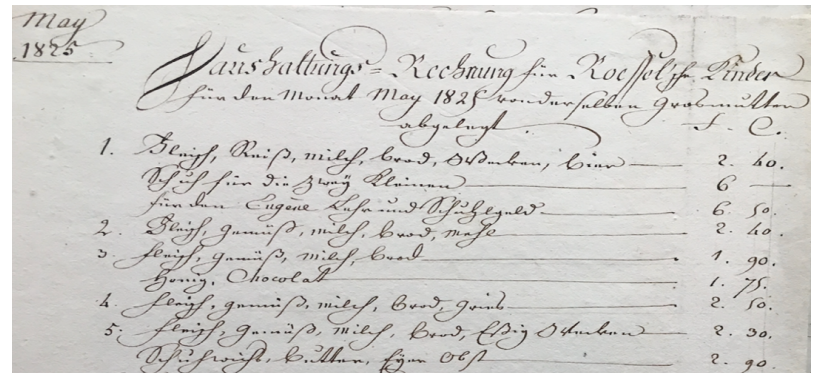 May
1825.
Haushaltungs=Rechnung für Roessel'sche Kinder
für den Monat May 1825 von derselben Grosmutter
abgelegt.
F. C.
1. Fleisch, Reiß, Milch, Brod, Wecken, Bier 2. 40.
Schuh für die zwey Kleinen 6 —
für den Eugène Lehr und Schuhlgeld 6. 50.
2. Fleisch, Gemüß, Milch, Brod, Mehl 2. 40.
3. Fleisch, Gemüß, Milch, Brod 1. 90.
Honig, Chocolat 1. 75.
4. Fleisch, Gemüß, Milch, Brod, Gries 2. 50.
5. Fleisch, Gemüß, Milch, Brod, Eßig Wecken 2. 30.
Schuhwichs, Butter, Eyer Obst 2. 90.